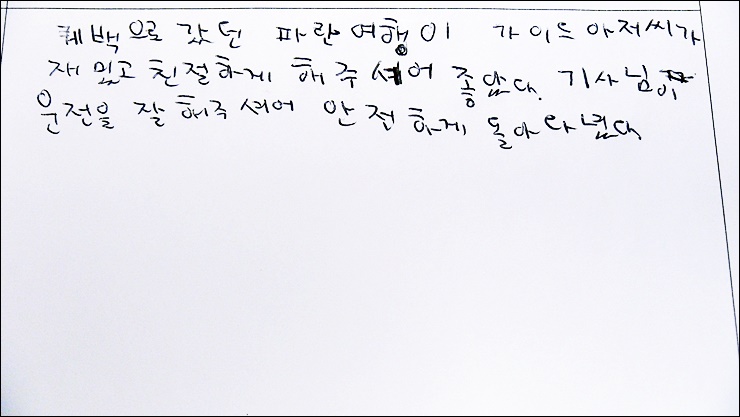 태백으로 갔던 파란여행이 가이드 아저씨가
재밌고 친절하게 해주셔어 좋았다. 기사님이
운전을 잘해주셔어 안전하게 돌아다녔다